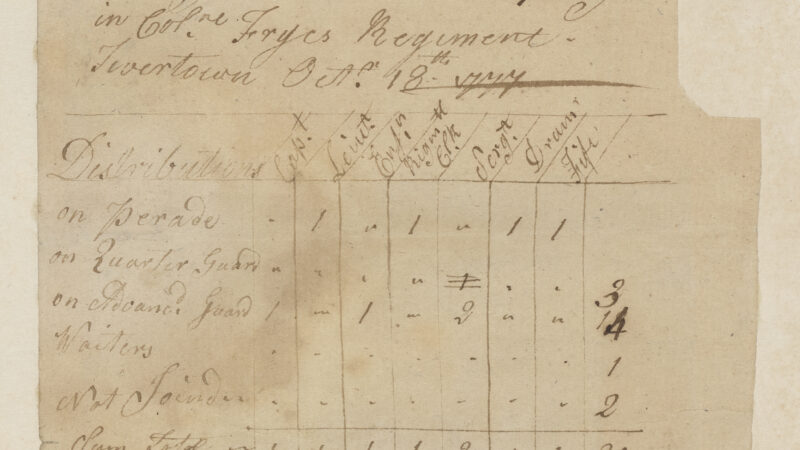 in Colne Fryes Regiment
Tivertown Octr 18th 1777
Distributions Capt Lieut Ensn Regmtl Clk Sergt Drumr Fife
on Perade " 1 " 1 " 1 1
on Quarter Guard " " " " 1 " " 3
on Advancd Guard 1 " 1 " 2 " " 14
Waiters " " " " " " " 1
Not Joind " " " " " " " 2
Sum Total 1 1 1 1 2 1 1